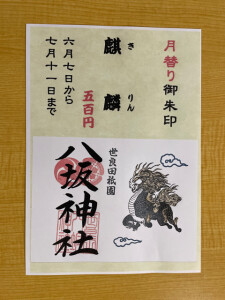 月替り御朱印
麒麟
きりん
五百円
六月七日から
七月十一日まで
世良田祇園
八坂神社